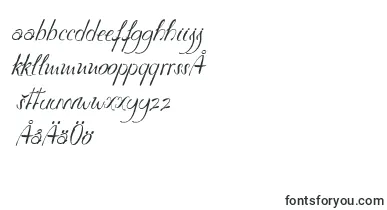 aabbccddeeffgghhiijj
kkllmmnnooppqqrrssÅ
šttuuvvwwxxyyzz
ÅåÄäÖö
fontsforyou.com